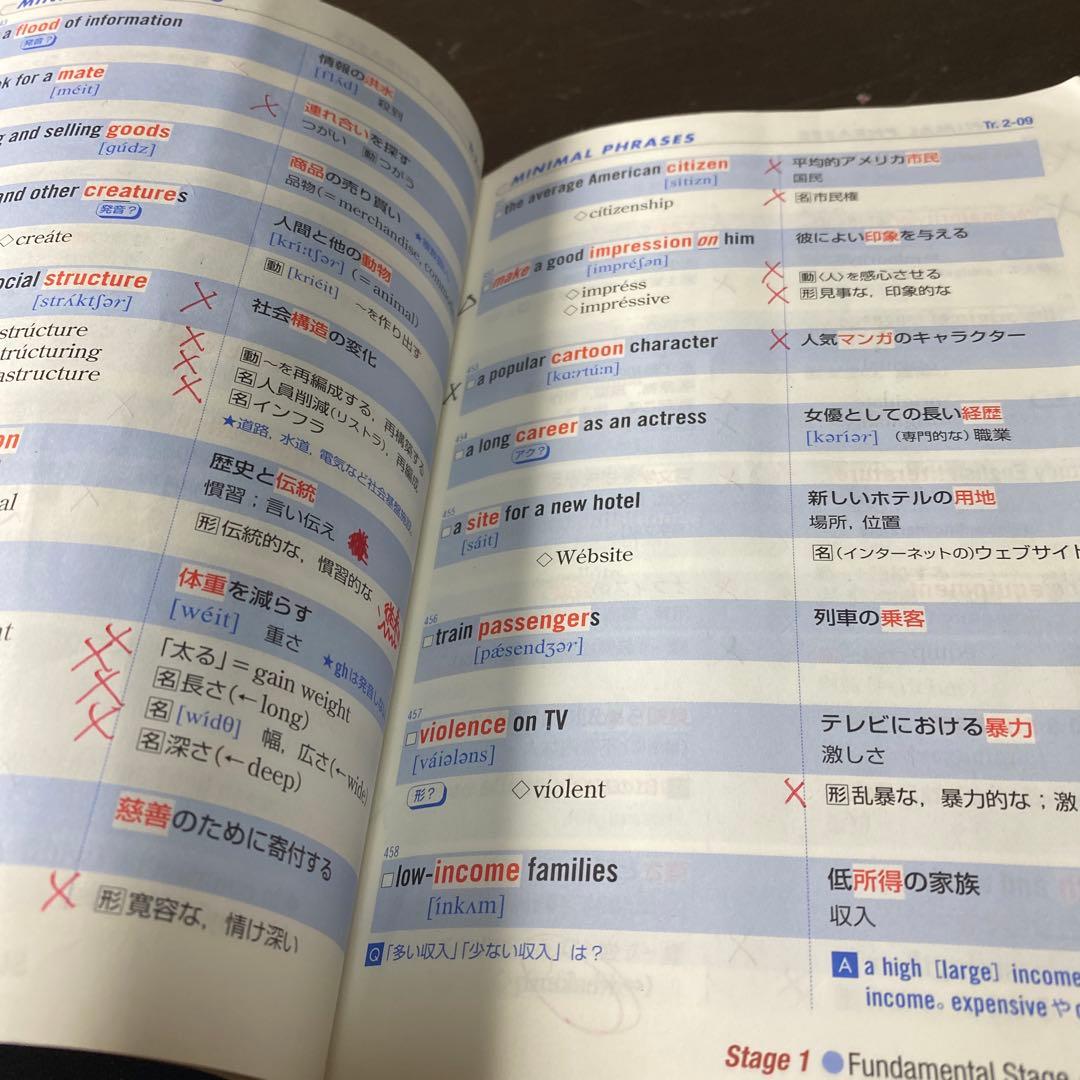 a flood of information
発音?
情報の洪水
殺到
k for a mate
[méit]
連れ合いを探す
つがい 動つがう
g and selling goods
[gúdz]
商品の売り買い
品物(=merchandise,
and other creatures
発音?
人間と他の動物
[kríːtʃər] (=animal)
◇creáte
動[kriéit] ～を作り出す
ocial structure
[strʌ́ktʃər]
社会構造の変化
動～を再編成する, 再構築する
名人員削減(リストラ), 再編成
名インフラ
★道路, 水道, 電気など社会基盤施設
strúcture
trúcturing
astructure
on
歴史と伝統
慣習；言い伝え
al
形伝統的な, 慣習的な
体重を減らす
[wéit] 重さ
★ghは発音しない
「太る」=gain weight
名長さ(←long)
名[wídθ] 幅, 広さ(←wide)
名深さ(←deep)
慈善のために寄付する
形寛容な, 情け深い
MINIMAL PHRASES
Tr. 2-09
the average American citizen
[sítizn]
平均的アメリカ市民
国民
◇cítizenship
名市民権
make a good impression on him
[impréʃən]
彼によい印象を与える
◇impréss
動〈人〉を感心させる
◇impréssive
形見事な, 印象的な
a popular cartoon character
[kɑːrtúːn]
人気マンガのキャラクター
454
a long career as an actress
アク?
女優としての長い経歴
[kəríər] (専門的な)職業
455
a site for a new hotel
[sáit]
新しいホテルの用地
場所, 位置
◇Wébsite
名(インターネットの)ウェブサイト
456
train passengers
[pǽsendʒər]
列車の乗客
457
violence on TV
[váiələns]
テレビにおける暴力
激しさ
形?
◇víolent
形乱暴な, 暴力的な；激
458
low-income families
[ínkʌm]
低所得の家族
収入
Q「多い収入」「少ない収入」は？
A a high [large] income
income。expensive や
Stage 1 ●Fundamental Stage